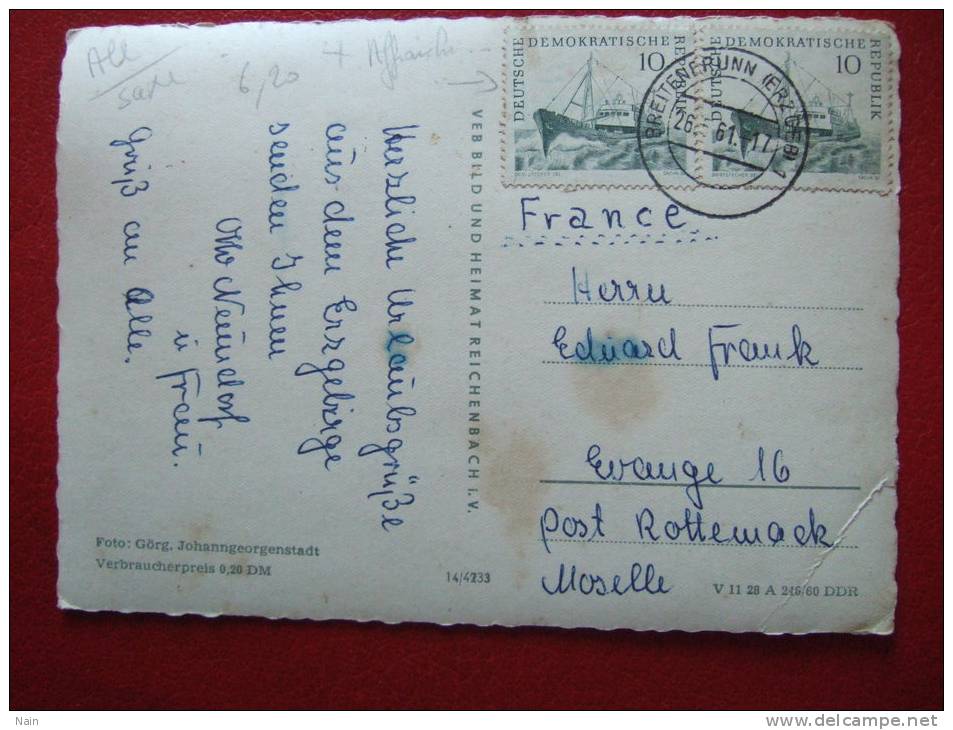 All
saxe
6,20
+ Affranch...
Herzliche Urlaubsgrüße
aus dem Erzgebirge
senden Ihnen
Otto Neundorf
u Frau.
Grüß an Alle.
Foto: Görg, Johanngeorgenstadt
Verbraucherpreis 0,20 DM
14/4233
VEB BILD UND HEIMAT REICHENBACH i.V.
DEUTSCHE DEMOKRATISCHE REPUBLIK
10
DEUTSCHE DEMOKRATISCHE REPUBLIK
10
BREITENBRUNN (ERZGEB) 1
61.-17
France
Herrn
Eduard Frank
Evange 16
Post Rottemack
Moselle
V 11 28 A 246/60 DDR
Nain
http://www.delcampe.net